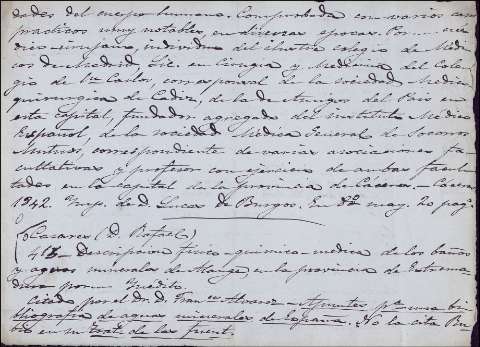 dades del cuerpo humano. Comprobada con varios casos
practicos muy notables, en diversas epocas. Por... me
dico-cirujano, individuo del ilustre colegio de Medi
cos de Madrid, Lic. en Cirugia y Medicina del Cole
gio de Sn. Carlos, corresponsal de la sociedad Medico
quirurgica de Cadiz, de la de Amigos del Pais en
esta capital, fundador agregado del instituto Medico
Español, de la sociedad Medica General de Socorros
Mutuos, correspondiente de varias asociaciones fa
cultativas y profesor con ejercicio de ambas facul
tades en la capital de la provincia de Cáceres. - Caceres
1842. Imp. de D. Lucas de Burgos. En 8º may. 20 pag.
Casares (D. Rafael)
413 - Descripcion fisico-quimica-medica de los baños
y aguas minerales de Alange, en la provincia de Estrema
dura por — Inedito
Citado por el dr. D. Franco Alvarez - Apuntes pa una bi
bliografia de aguas minerales de España. No la cita Ru
bio en su trat. de las fuent.